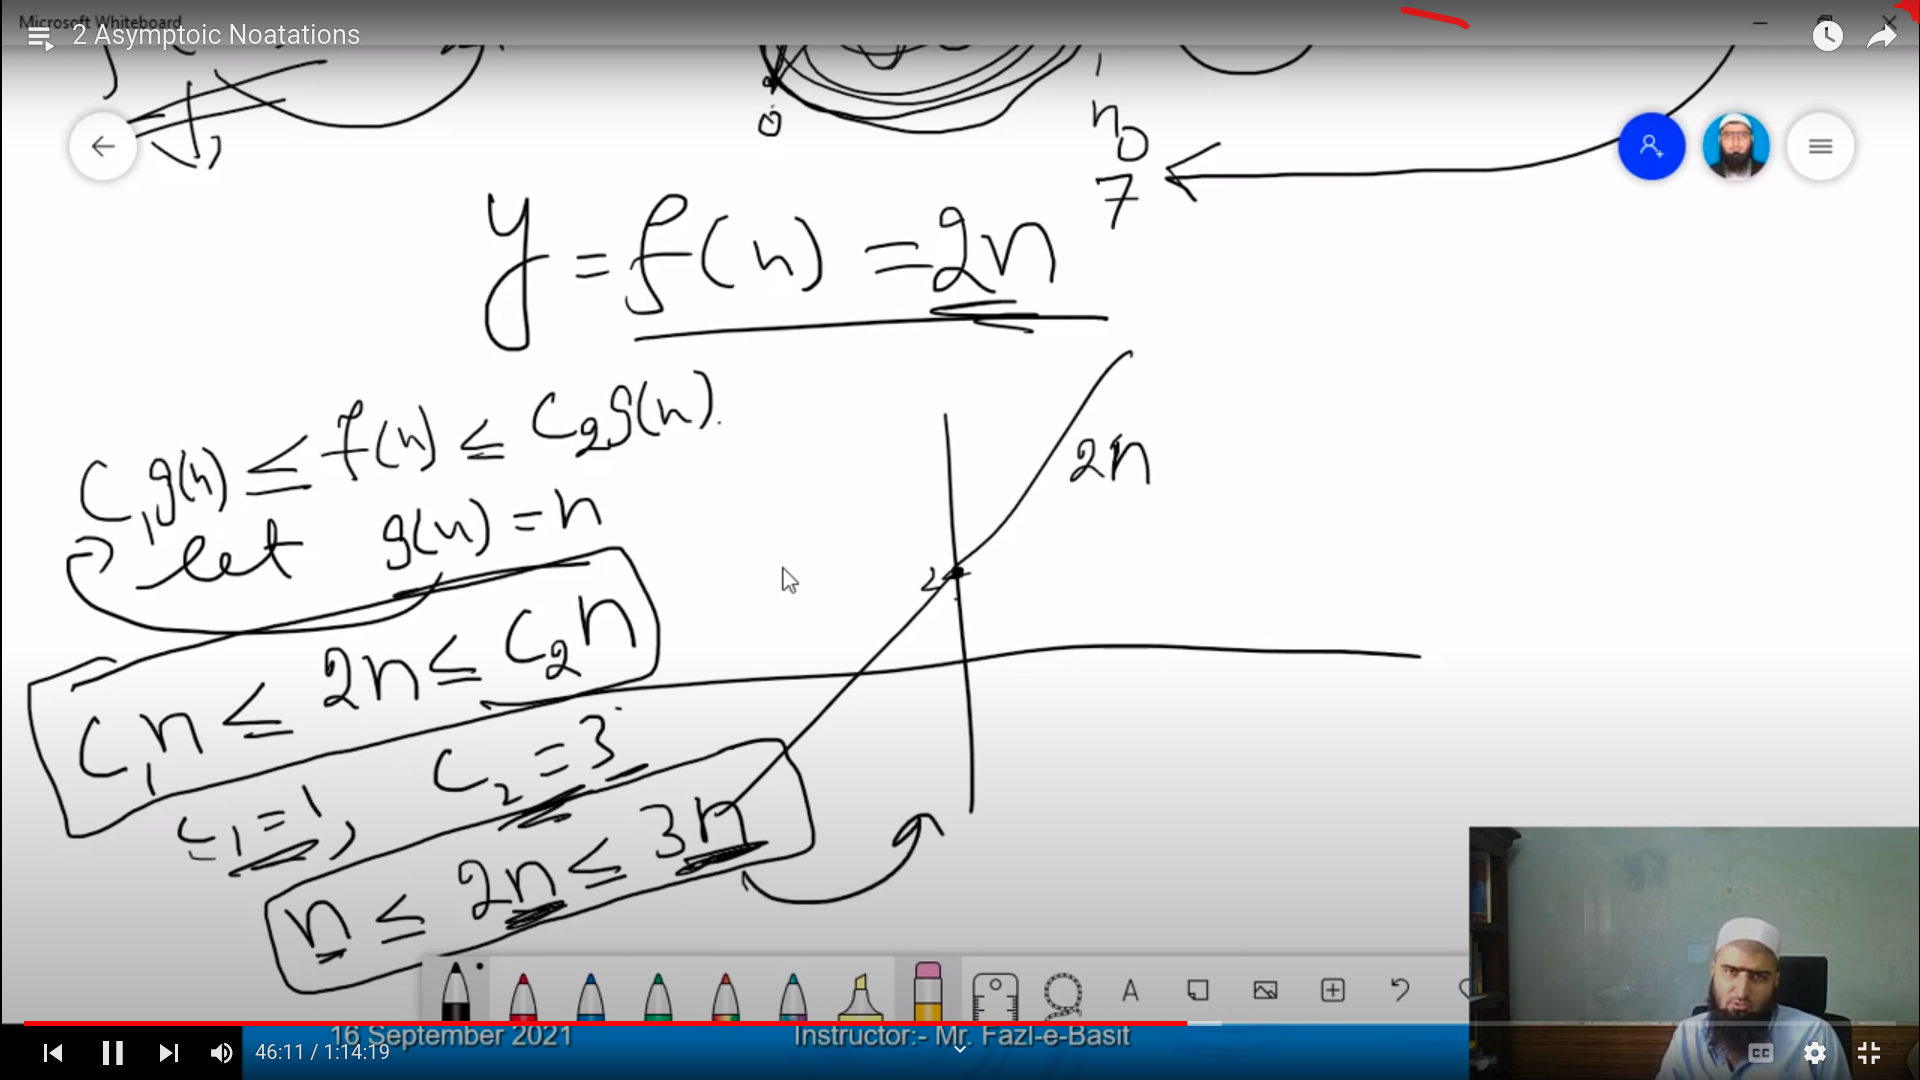 Microsoft Whiteboard
2 Asymptoic Noatations
0
n0
7
y = f(n) = 2n
C1g(n) ≤ f(n) ≤ C2g(n).
let g(n) = n
C1n ≤ 2n ≤ C2n
C1=1, C2=3
n ≤ 2n ≤ 3n
2n
2
A
16 September 2021 Instructor:- Mr. Fazl-e-Basit
46:11 / 1:14:19
CC